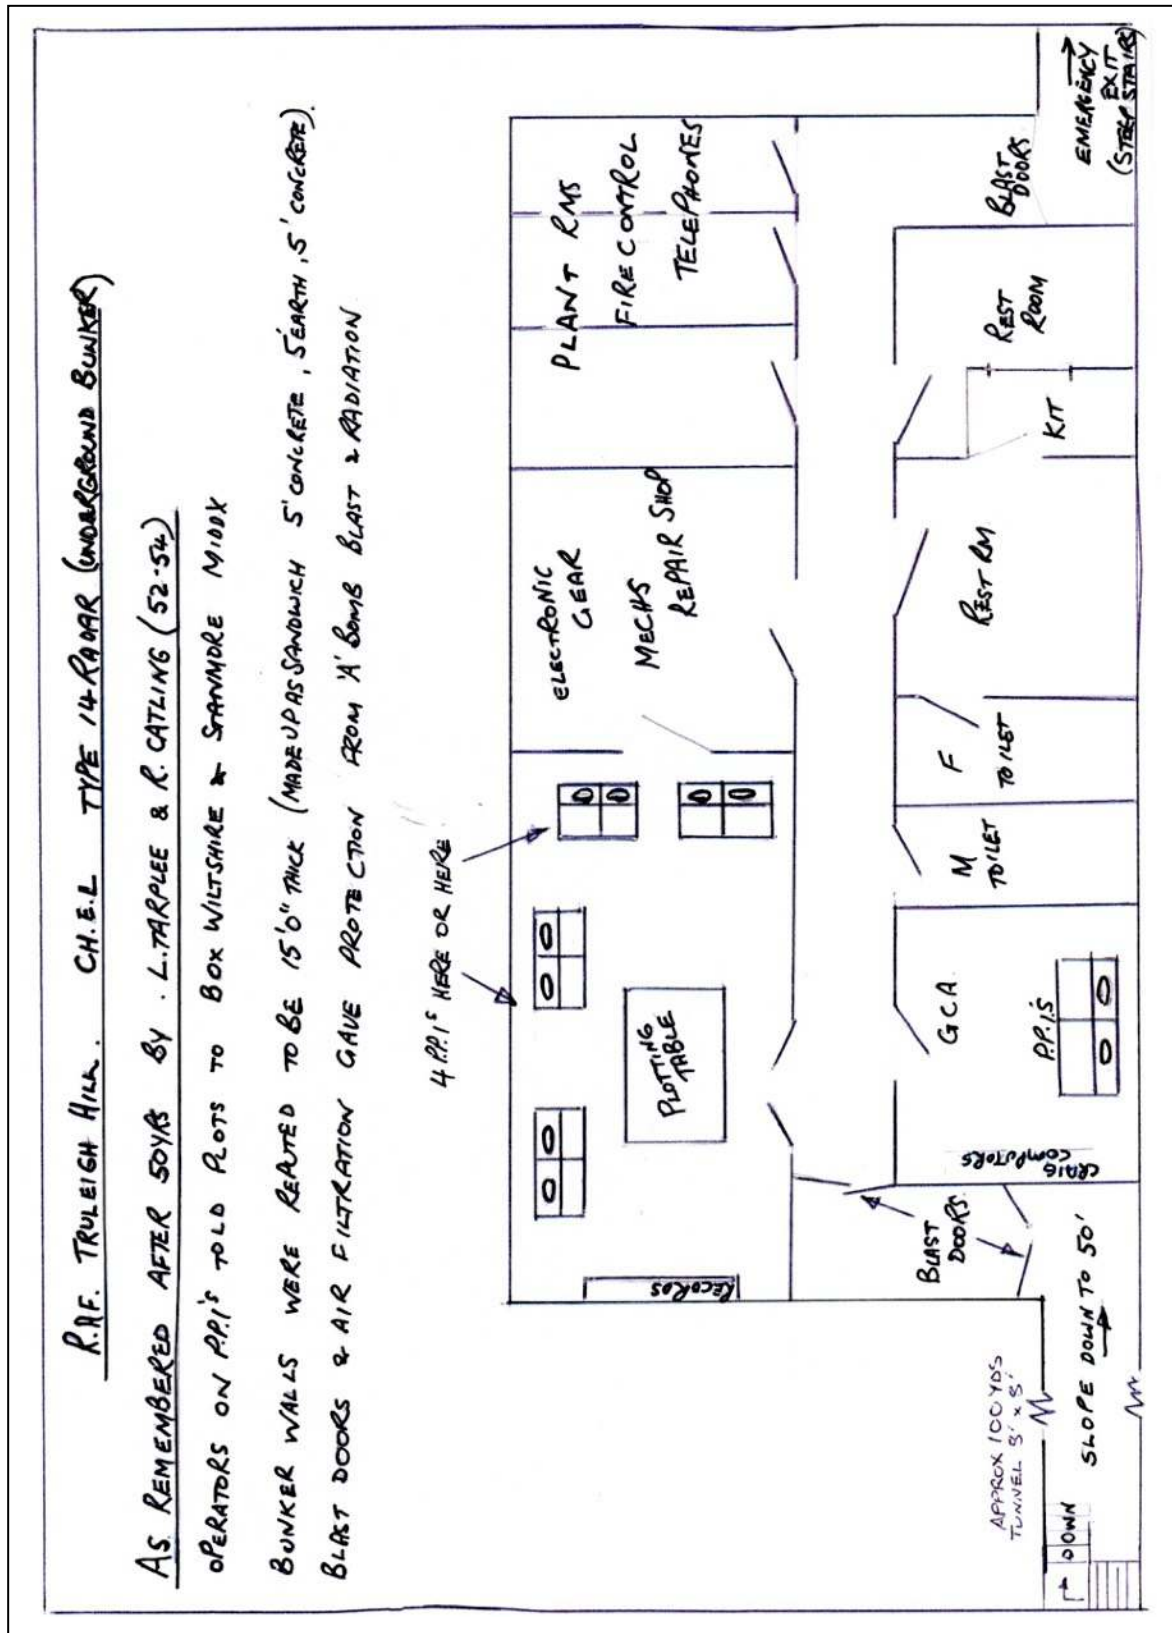 R.A.F. TRULEIGH HILL. CH.E.L TYPE 14 RADAR (UNDERGROUND BUNKER)
AS REMEMBERED AFTER 50YRS BY . L.TARPLEE & R. CATLING (52-54)
OPERATORS ON P.P.I'S TOLD PLOTS TO BOX WILTSHIRE & STANMORE MIDDX
BUNKER WALLS WERE REPUTED TO BE 15'0" THICK (MADE UP AS SANDWICH 5' CONCRETE, 5'EARTH, 5' CONCRETE).
BLAST DOORS & AIR FILTRATION GAVE PROTECTION FROM 'A' BOMB BLAST & RADIATION
4 P.P.I'S HERE OR HERE
RECORDS
PLOTTING
TABLE
ELECTRONIC
GEAR
MECHS
REPAIR SHOP
PLANT RMS
FIRE CONTROL
TELEPHONES
BLAST
DOORS
CRAIG
COMPUTORS
G C A.
P.P.I.'S
M
TOILET
F
TOILET
REST RM
KIT
REST
ROOM
BLAST
DOORS
EMERGENCY
EXIT
(STEEP STAIRS)
APPROX 100 YDS
TUNNEL 8' x 8'
DOWN
SLOPE DOWN TO 50'